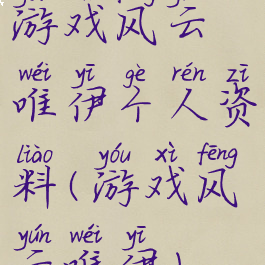 游戏风云
wéi yī gè rén zī
唯伊个人资
liào yóu xì fēng
料(游戏风
yún wéi yī
云唯伊)